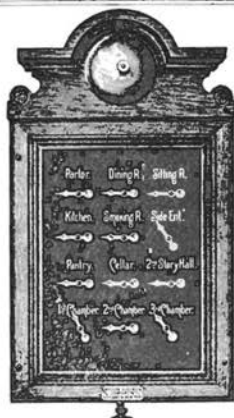 Parlor. Dining R. Sitting R.
Kitchen. Smoking R. Side Ent.
Pantry. Cellar. 2ⁿᵈ Story Hall.
1ˢᵗ Chamber. 2ⁿᵈ Chamber. 3ʳᵈ Chamber.